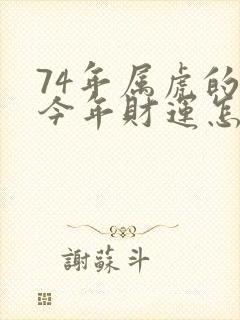 74年属虎的
今年財運怎
謝蘇斗